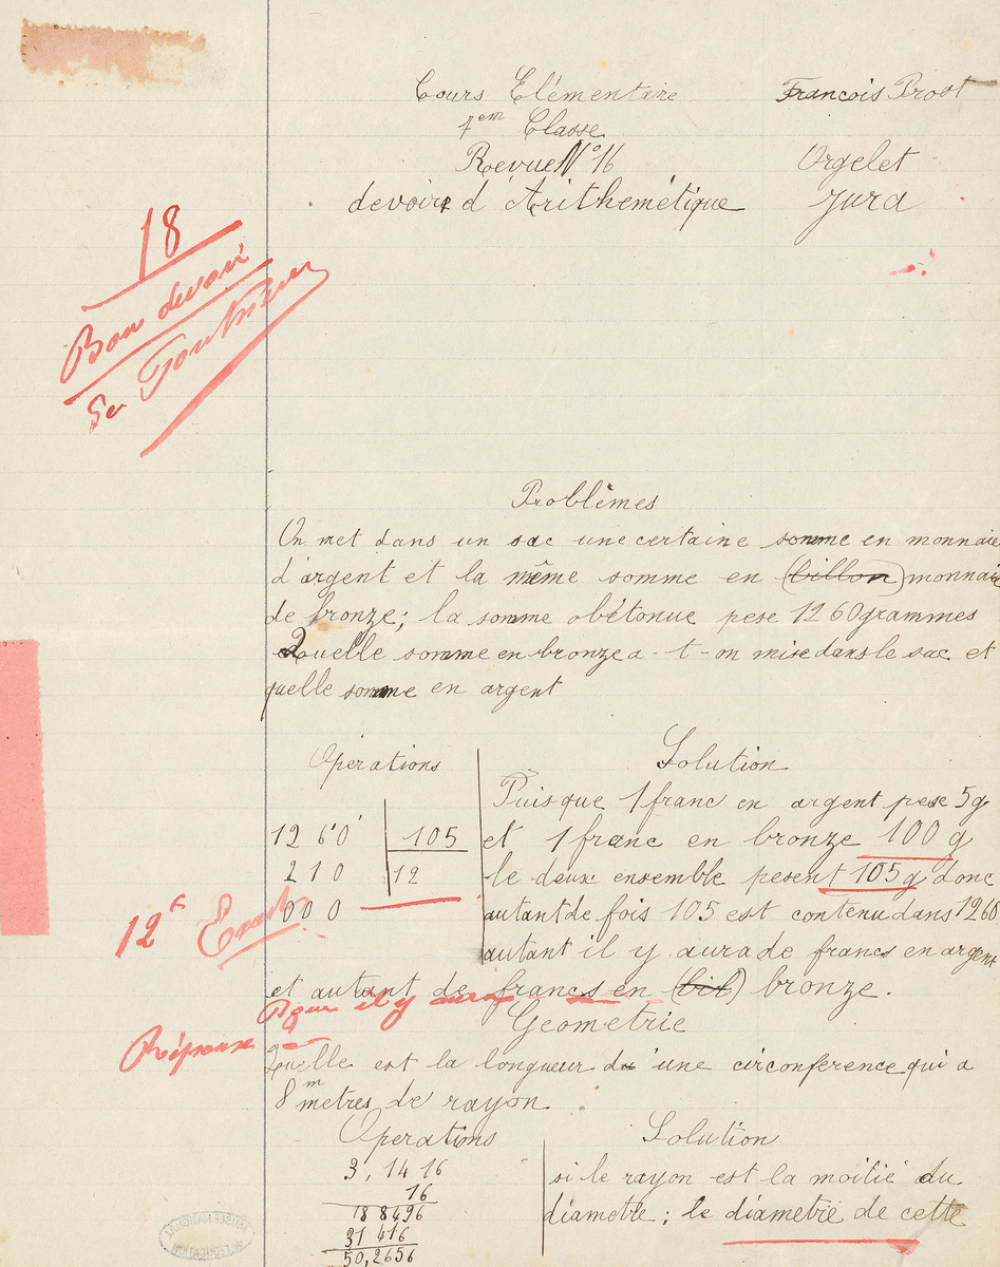 Cours Elémentaire François Prost
7em Classe
Revue N°16 Orgelet
devoirs d'Arithemétique Jura
18
Bon devoir
Problèmes
On met dans un sac une certaine somme en monnaie
d'argent et la même somme en (billon) monnaie
de bronze; la somme obétonue pese 1260 grammes
Quelle somme en bronze a-t-on mise dans le sac et
quelle somme en argent
Opérations Solution
Puisque 1 franc en argent pese 5g
1260 105 et 1 franc en bronze 100 g
210 12 le deux ensemble pesent 105g donc
000 autant de fois 105 est contenu dans 1260
12f Exact
autant il y aura de francs en argent
et autant de francs en (bil) bronze.
Réponse
Géometrie
Quelle est la longueur du'une circonference qui a
8m metres de rayon.
Operations Solution
3,1416 si le rayon est la moitié du
16
188496 diametre; le diametre de cette
31416
50,2656